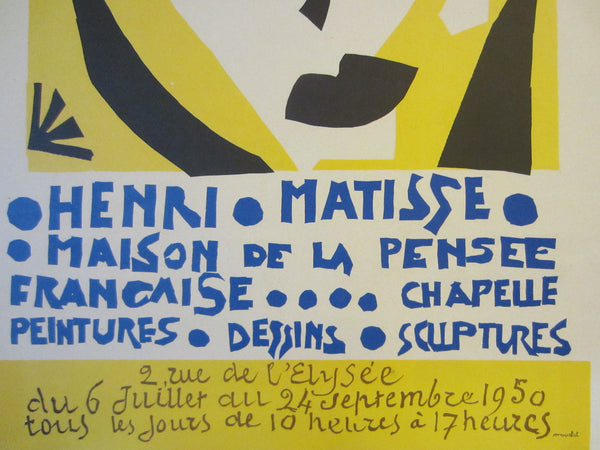 HENRI MATISSE
MAISON DE LA PENSEE
FRANÇAISE CHAPELLE
PEINTURES DESSINS SCULPTURES
2, rue de l'Elysée
du 6 Juillet au 24 septembre 1950
tous les jours de 10 heures à 17 heures